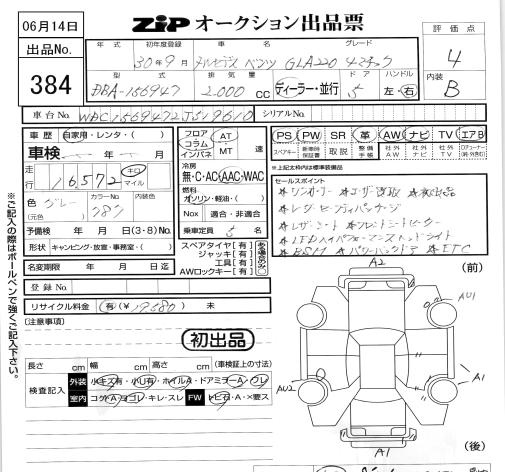 06月14日
ZIP オークション出品票
出品No.
384
評価点
4
内装
B
年式 初年度登録 車名 グレード
30年9月 メルセデスベンツ GLA220 4マチック
型式 排気量 ドア ハンドル
DBA-156947 2,000 cc ディーラー・並行 5 左・右
車台No. WDC1569472J519610 シリアルNo.
車歴 自家用・レンタ・( )
車検 年 月
走行 16,572 キロ マイル
色 グレー (元色) カラーNo. 787 内装色
予備検 年 月 日(3・8)No.
形状 キャンピング・放宣・事務室・( )
名変期限 年 月 日迄
登録No.
リサイクル料金 有(¥ 19580) 未
フロア コラム インパネ AT MT 速
冷房
無・C・AC・AAC・WAC
燃料
ガソリン・軽油・( )
Nox 適合・非適合
乗車定員 5 名
スペアタイヤ【有】
ジャッキ【有】
工具【有】
AWロックキー【有】
PS PW SR 革 AW ナビ TV エアB
スペアキー 新車時保証書 取説 整備手帳 社外AW 社外ナビ 社外TV
※上記太枠内は標準装備品
セールスポイント
★ワンオーナー ★ユーザー買取 ★初出品
★レーダーセーフティパッケージ
★レザーシート ★フロントシートヒーター
★LEDハイパフォーマンスヘッドライト
★BSM ★パワーバックドア ★ETC
【注意事項】
初出品
長さ cm 幅 cm 高さ cm (車検証上の寸法)
検査記入 外装 小キズ有・小U有・ホイルA・ドアミラーA・ワレ
室内 コゲA・ヨゴレ・キレ・スレ FW トビ石A・×要ス
A2 (前)
AU1
AU2
A1
A1
(後)
※ご記入の際はボールペンで強くご記入下さい。